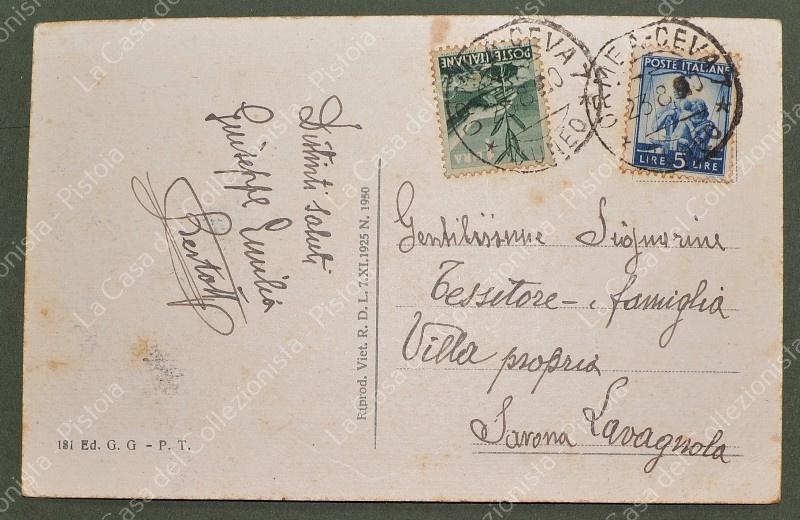 Distinti saluti
Giuseppe Emilia
Riprod. Viet. R. D. L. 7.XI.1925 N. 1950
181 Ed. G. G - P. T.
POSTE ITALIANE
LIRA
POSTE ITALIANE
LIRE 5 LIRE
ORMEA-CEVA
Gentilissime Signorine
Tessitore - famiglia
Villa propria
Savona Lavagnola
La Casa del Collezionista - Pistoia